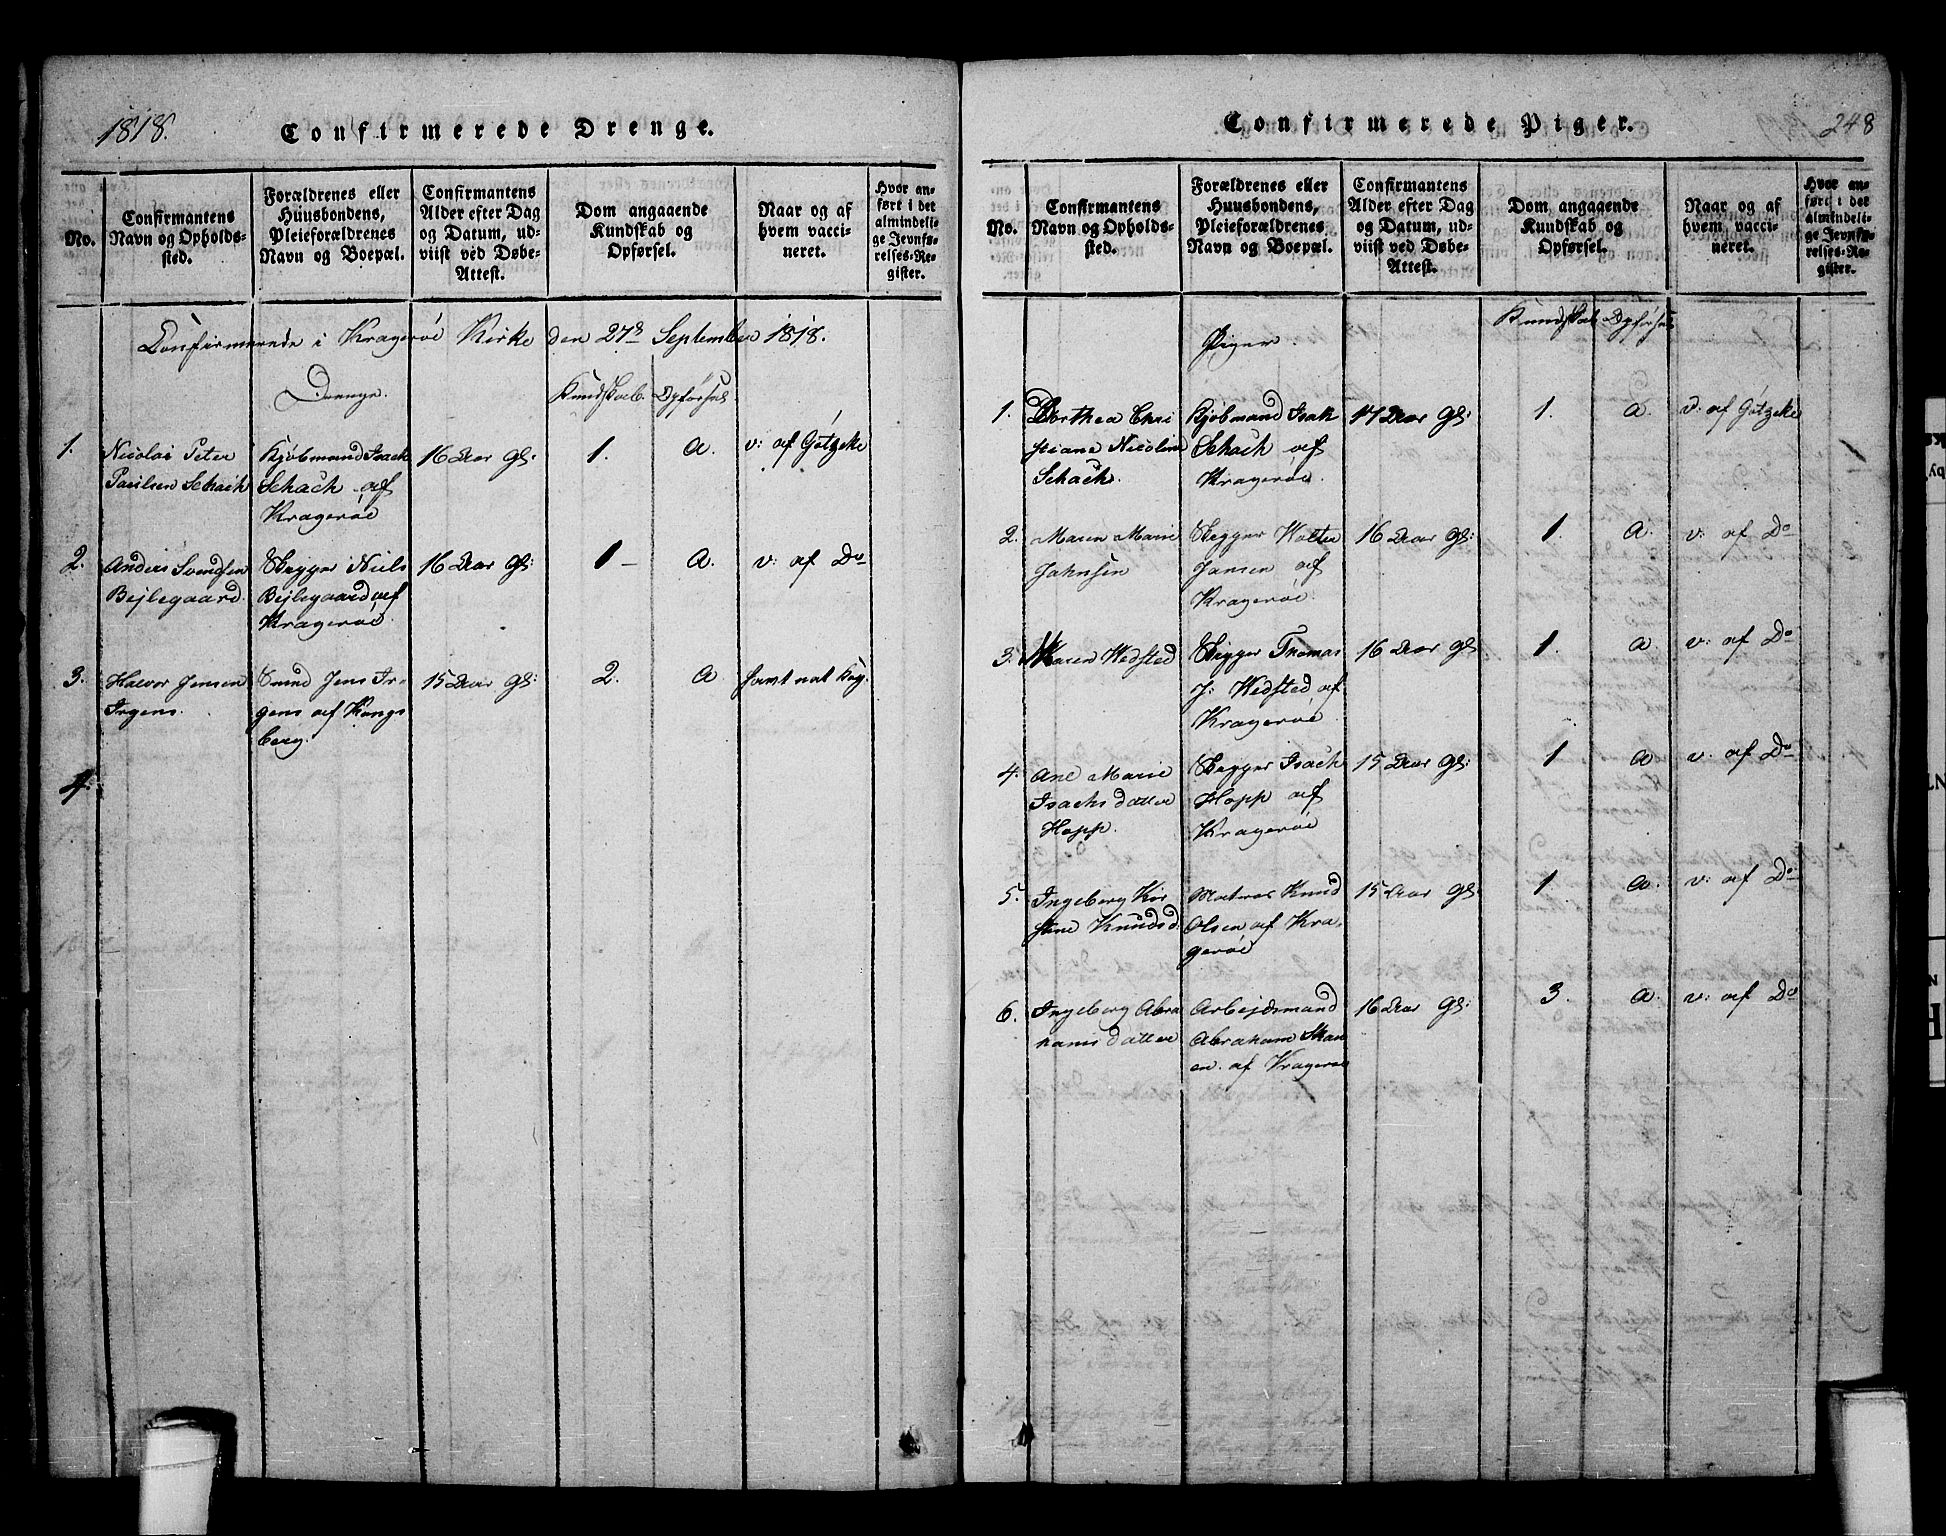 1818.
Confirmerede Drenge.
No.
Confirmantens
Navn og Opholds-
sted.
Forældrenes eller
Huusbondens,
Pleieforældrenes
Navn og Boepæl.
Confirmantens
Alder efter Dag
og Datum, ud-
viist ved Døbe-
Attest.
Dom angaaende
Kundskab og
Opførsel.
Naar og af
hvem vacci-
neret.
Hvor an-
ført i det
almindeli-
ge Jevnfø-
relses-Re-
gister.
Confirmerede i Kragerøe Kirke den 27de September 1818.
Drenge.
Kundskab. Opførsel
1.
Nicolai Peter
Paulsen Schach
Kjøbmand Isach
Schach af
Kragerøe
16 Aar gl:
1.
a.
v: af Götzcke
2.
Anders Svendsen
Bejlegaard.
Skipper Niels
Bejlegaard af
Kragerøe
16 Aar gl:
1 –
a.
v: af Do
3.
Halvor Jensen
Irgens.
Smed Jens Ir-
gens af Kongs
berg.
15 Aar gl:
2.
a
havt nat Kop.
4.
Confirmerede Piger.
248
No.
Confirmantens
Navn og Opholds-
sted.
Forældrenes eller
Huusbondens,
Pleieforældrenes
Navn og Boepæl.
Confirmantens
Alder efter Dag
og Datum, ud-
viist ved Døbe-
Attest.
Dom angaaende
Kundskab og
Opførsel.
Naar og af
hvem vacci-
neret.
Hvor an-
ført i det
almindeli-
ge Jevnfø-
relses-Re-
gister.
Piger.
Kundskab Opførsel
1.
Dorthea Chri
stiane Nicoline
Schach.
Kjøbmand Isak
Schach af
Kragerøe.
17 Aar gl:
1.
a.
v: af Götzcke
2.
Maren Marie
Jahnsen
Skipper Wolter
Jansen af
Kragerøe.
16 Aar gl:
1.
a.
v: af Do
3.
Maren Wedsted
Skipper Thomas
J: Wedsted af
Kragerøe
16 Aar gl
1.
a
v: af Do
4.
Ane Marie
Isachsdatter
Hopp.
Skipper Isach
Hopp af
Kragerøe
15 Aar gl:
1
a
v: af Do
5.
Ingeborg Kir
stine Knudsd
Matros Knud
Olsen af Kra-
gerøe
15 Aar gl
1
a.
v: af Do
6.
Ingeborg Abra
hams datter
Arbejdsmand
Abraham
af Kragerøe
16 Aar gl:
3.
a.
v: af Do